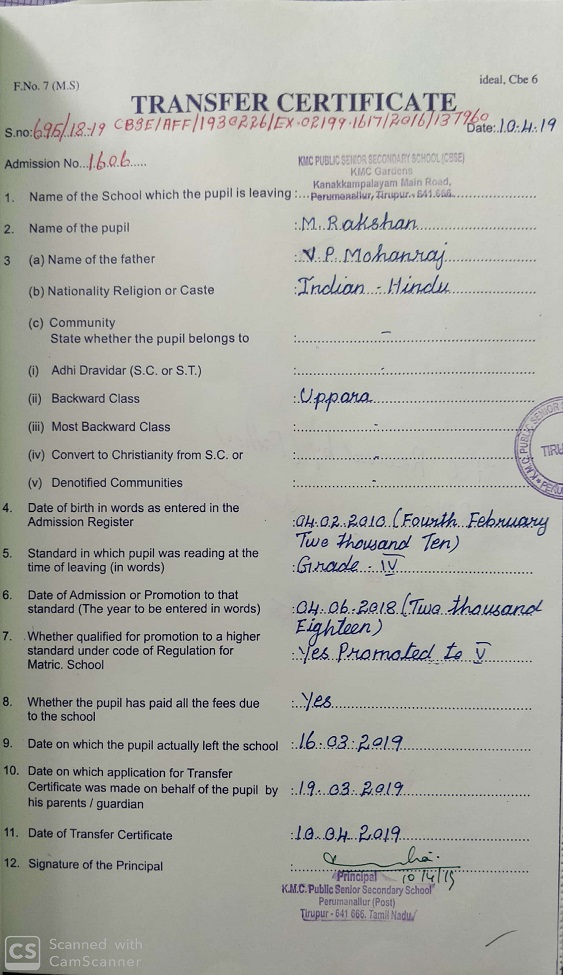 F.No. 7 (M.S)
ideal, Cbe 6
TRANSFER CERTIFICATE
S.no: 695/18-19 CBSE/AFF/1930226/EX-02199-1617/2016/137960 Date: 10.4.19
Admission No. 1606
KMC PUBLIC SENIOR SECONDARY SCHOOL (CBSE)
KMC Gardens
Kanakkampalayam Main Road,
1. Name of the School which the pupil is leaving : Perumanallur, Tirupur - 641 666.
2. Name of the pupil : M. Rakshan
3 (a) Name of the father : V.P. Mohanraj
(b) Nationality Religion or Caste : Indian - Hindu
(c) Community
State whether the pupil belongs to : -
(i) Adhi Dravidar (S.C. or S.T.) : -
(ii) Backward Class : Uppara
(iii) Most Backward Class : -
(iv) Convert to Christianity from S.C. or : -
(v) Denotified Communities : -
4. Date of birth in words as entered in the : 04.02.2010 (Fourth February
Admission Register Two thousand Ten)
5. Standard in which pupil was reading at the : Grade - IV
time of leaving (in words)
6. Date of Admission or Promotion to that : 04.06.2018 (Two thousand
standard (The year to be entered in words) Eighteen)
7. Whether qualified for promotion to a higher : Yes Promoted to V
standard under code of Regulation for
Matric. School
8. Whether the pupil has paid all the fees due : Yes
to the school
9. Date on which the pupil actually left the school : 16.03.2019
10. Date on which application for Transfer : 19.03.2019
Certificate was made on behalf of the pupil by
his parents / guardian
11. Date of Transfer Certificate : 10.04.2019
12. Signature of the Principal :
Principal 10/4/19
K.M.C. Public Senior Secondary School
Perumanallur (Post)
Tirupur - 641 666. Tamil Nadu
K.M.C. PUBLIC SENIOR
TIRU
CS Scanned with
CamScanner